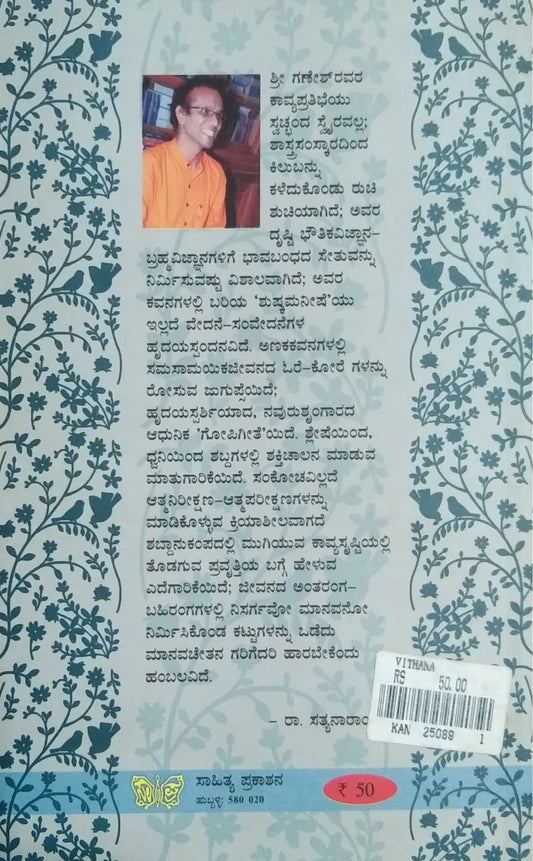 ಶ್ರೀ ಗಣೇಶ್‌ರವರ
ಕಾವ್ಯಪ್ರತಿಭೆಯು
ಸ್ವಚ್ಛಂದ ಸ್ವೈರವಲ್ಲ;
ಶಾಸ್ತ್ರಸಂಸ್ಕಾರದಿಂದ
ಕಿಲುಬನ್ನು
ಕಳೆದುಕೊಂಡು ರುಚಿ
ಶುಚಿಯಾಗಿದೆ; ಅವರ
ದೃಷ್ಟಿ ಭೌತಿಕವಿಜ್ಞಾನ–
ಬ್ರಹ್ಮವಿಜ್ಞಾನಗಳಿಗೆ ಭಾವಬಂಧದ ಸೇತುವನ್ನು
ನಿರ್ಮಿಸುವಷ್ಟು ವಿಶಾಲವಾಗಿದೆ; ಅವರ
ಕವನಗಳಲ್ಲಿ ಬರಿಯ 'ಶುಷ್ಕಮನೀಷೆ'ಯು
ಇಲ್ಲದೆ ವೇದನೆ–ಸಂವೇದನೆಗಳ
ಹೃದಯಸ್ಪಂದನವಿದೆ. ಅಣಕಕವನಗಳಲ್ಲಿ
ಸಮಸಾಮಯಿಕಜೀವನದ ಓರೆ–ಕೋರೆ ಗಳನ್ನು
ರೋಸುವ ಜುಗುಪ್ಸೆಯಿದೆ;
ಹೃದಯಸ್ಪರ್ಶಿಯಾದ, ನವುರುಶೃಂಗಾರದ
ಆಧುನಿಕ 'ಗೋಪಿಗೀತೆ'ಯಿದೆ. ಶ್ಲೇಷೆಯಿಂದ,
ಧ್ವನಿಯಿಂದ ಶಬ್ದಗಳಲ್ಲಿ ಶಕ್ತಿಚಾಲನ ಮಾಡುವ
ಮಾತುಗಾರಿಕೆಯಿದೆ. ಸಂಕೋಚವಿಲ್ಲದೆ
ಆತ್ಮನಿರೀಕ್ಷಣ–ಆತ್ಮಪರೀಕ್ಷಣಗಳನ್ನು
ಮಾಡಿಕೊಳ್ಳುವ ಕ್ರಿಯಾಶೀಲವಾಗದೆ
ಶಬ್ದಾನುಕಂಪದಲ್ಲಿ ಮುಗಿಯುವ ಕಾವ್ಯಸೃಷ್ಟಿಯಲ್ಲಿ
ತೊಡಗುವ ಪ್ರವೃತ್ತಿಯ ಬಗ್ಗೆ ಹೇಳುವ
ಎದೆಗಾರಿಕೆಯಿದೆ; ಜೀವನದ ಅಂತರಂಗ–
ಬಹಿರಂಗಗಳಲ್ಲಿ ನಿಸರ್ಗವೋ ಮಾನವನೋ
ನಿರ್ಮಿಸಿಕೊಂಡ ಕಟ್ಟುಗಳನ್ನು ಒಡೆದು
ಮಾನವಚೇತನ ಗರಿಗೆದರಿ ಹಾರಬೇಕೆಂದು
ಹಂಬಲವಿದೆ.
– ರಾ. ಸತ್ಯನಾರಾ
VITHANA
RS 50.00
KAN 25089 1
ಸಾಹಿತ್ಯ ಪ್ರಕಾಶನ
ಹುಬ್ಬಳ್ಳಿ: 580 020
₹ 50